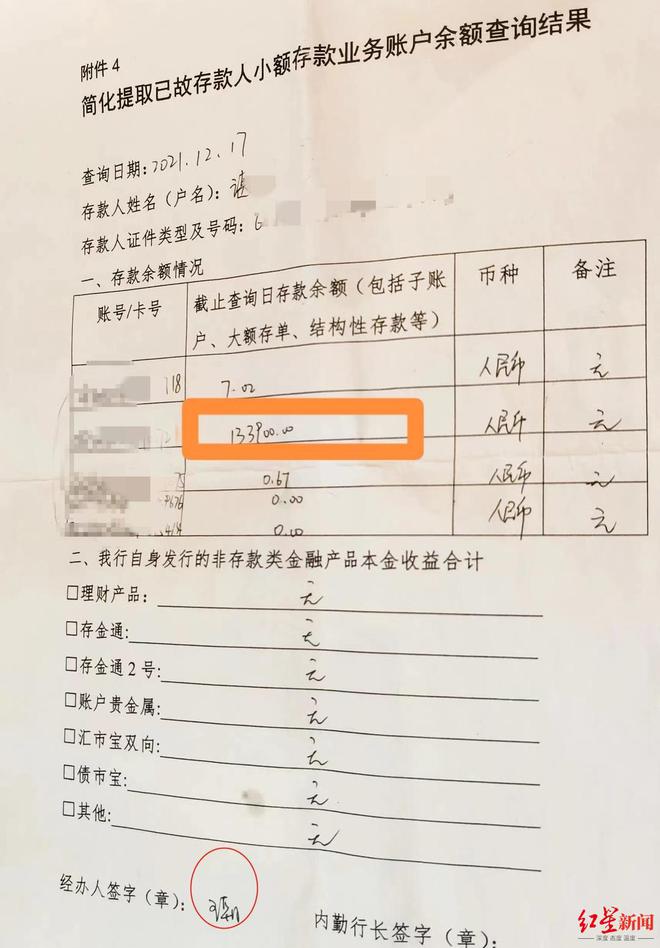 附件4
简化提取已故存款人小额存款业务账户余额查询结果
查询日期:2021.12.17
存款人姓名（户名）：
存款人证件类型及号码：
一、存款余额情况
账号/卡号 截止查询日存款余额（包括子账户、大额存单、结构性存款等） 币种 备注
118 7.02 人民币 元
133900.00 人民币 元
75 0.67 人民币 元
0.00 人民币 元
0.00
二、我行自身发行的非存款类金融产品本金收益合计
□理财产品：
□存金通:
□存金通2号:
□账户贵金属:
□汇市宝双向:
□债市宝:
□其他:
经办人签字（章）：
内勤行长签字（章）：
红星新闻
深度 态度 温度